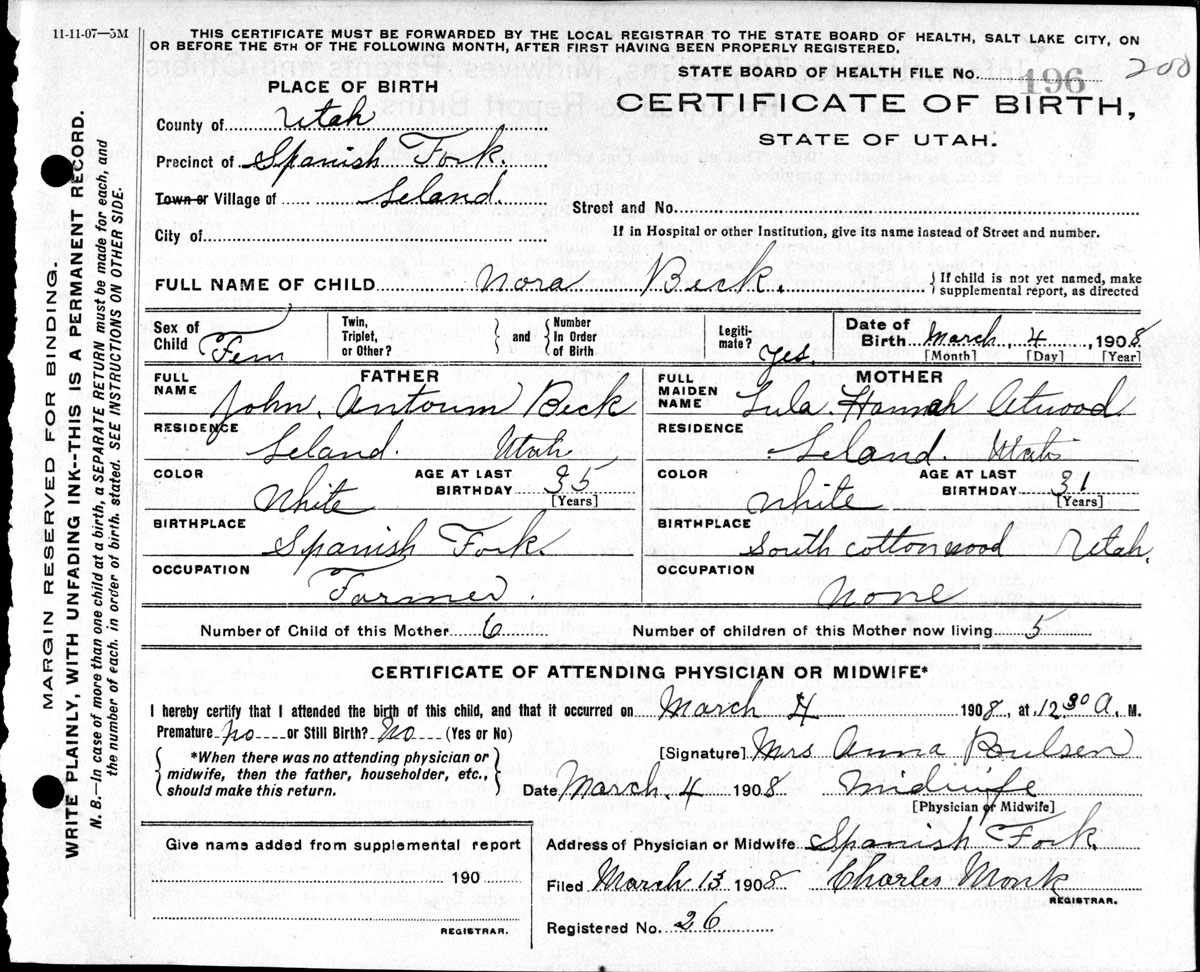 11-11-07—5M
THIS CERTIFICATE MUST BE FORWARDED BY THE LOCAL REGISTRAR TO THE STATE BOARD OF HEALTH, SALT LAKE CITY, ON
OR BEFORE THE 5TH OF THE FOLLOWING MONTH, AFTER FIRST HAVING BEEN PROPERLY REGISTERED.
STATE BOARD OF HEALTH FILE No. 196 200
PLACE OF BIRTH
CERTIFICATE OF BIRTH,
STATE OF UTAH.
County of Utah
Precinct of Spanish Fork.
Town or Village of Leland.
Street and No.
City of
If in Hospital or other Institution, give its name instead of Street and number.
FULL NAME OF CHILD Nora Beck. { If child is not yet named, make
supplemental report, as directed
Sex of Child Fem
Twin, Triplet, or Other? } and { Number In Order of Birth
Legitimate? yes.
Date of Birth March, 4, 1908
[Month] [Day] [Year]
FATHER
FULL NAME John. Antoum Beck
RESIDENCE Leland. Utah
COLOR White AGE AT LAST BIRTHDAY 35 [Years]
BIRTHPLACE Spanish Fork.
OCCUPATION Farmer.
MOTHER
FULL MAIDEN NAME Lula. Hannah Atwood.
RESIDENCE Leland. Utah
COLOR White AGE AT LAST BIRTHDAY 31 [Years]
BIRTHPLACE South Cottonwood Utah.
OCCUPATION None
Number of Child of this Mother 6 Number of children of this Mother now living 5
CERTIFICATE OF ATTENDING PHYSICIAN OR MIDWIFE*
I hereby certify that I attended the birth of this child, and that it occurred on March 4 1908, at 12 30 A, M.
Premature? no or Still Birth? No (Yes or No)
*When there was no attending physician or
midwife, then the father, householder, etc.,
should make this return.
[Signature] Mrs Anna Poulsen
Date March 4 1908 Midwife
[Physician or Midwife]
Give name added from supplemental report
190
REGISTRAR.
Address of Physician or Midwife Spanish Fork.
Filed March 13 1908 Charles Monk
REGISTRAR.
Registered No. 26
MARGIN RESERVED FOR BINDING.
WRITE PLAINLY, WITH UNFADING INK--THIS IS A PERMANENT RECORD.
N. B.—In case of more than one child at a birth, a SEPARATE RETURN must be made for each, and
the number of each, in order of birth, stated. SEE INSTRUCTIONS ON OTHER SIDE.